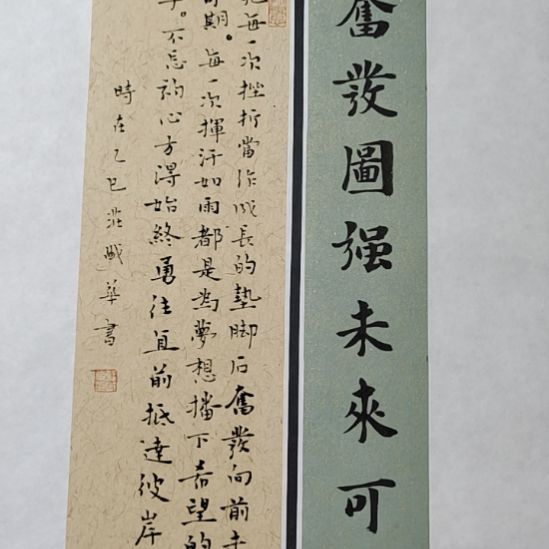 奮發圖强未來可
每一次挫折當作成長的墊脚石奮發向前未
期。每一次揮汗如雨都是為夢想播下希望的
。不忘初心方得始終勇往直前抵達彼岸
時在乙巳莊成華書